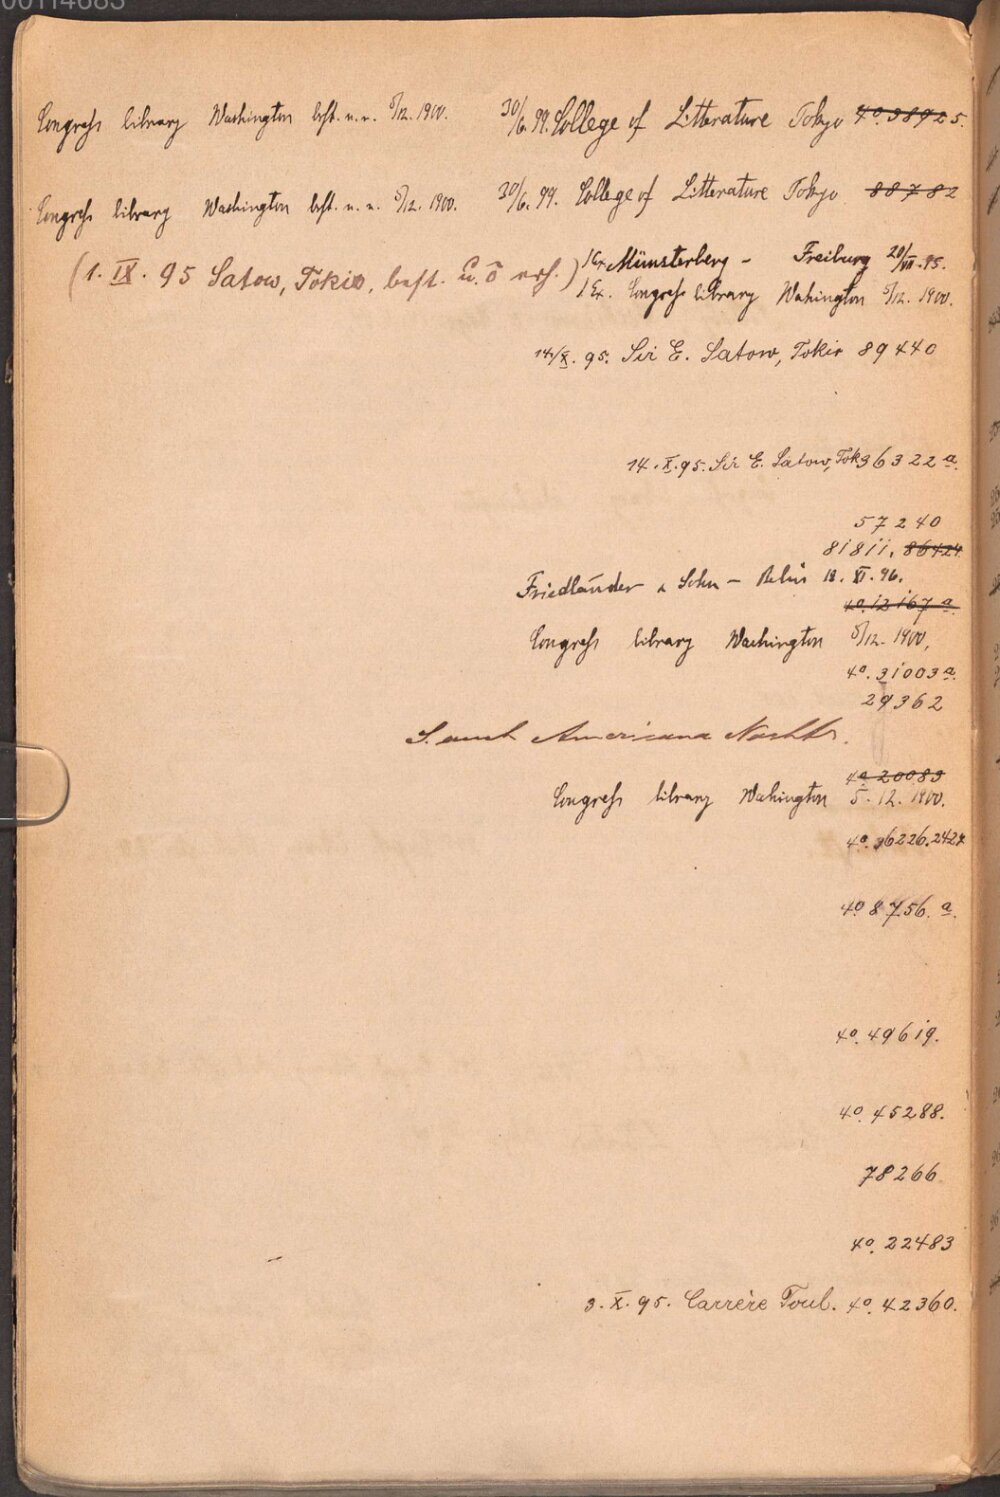 00114685
Congress library Washington best. u. v. 5/12. 1900. 30/6. 99. College of Litterature Tokyo 4°. 38925.
Congress library Washington best. u. u. 5/12. 1900. 30/6. 99. College of Litterature Tokyo 88782
(1. IX. 95 Satow, Tokio, best. u. ö) 1 Ex. Münsterberg - Freiburg 20/VII. 95.
1 Ex. Congress library Wahington 5/12. 1900.
14/X. 95. Sir E. Satow, Tokio 89440
14. X. 95. Sir E. Satow, Tok 36322 a.
57240
81811. 86424
Friedländer & Sohn - Berlin 18. XI. 96.
4°. 12167 a.
Congress library Washington 5/12. 1900.
4°. 31003 a.
29362
S. auch Americana Nachtr.
4°. 20083
Congress library Wahington 5. 12. 1900.
4°. 36226. 2427
4° 8756. a.
4°. 49619.
4°. 45288.
78266
4°. 22483
3. X. 95. Carrère Toul. 4°. 42360.